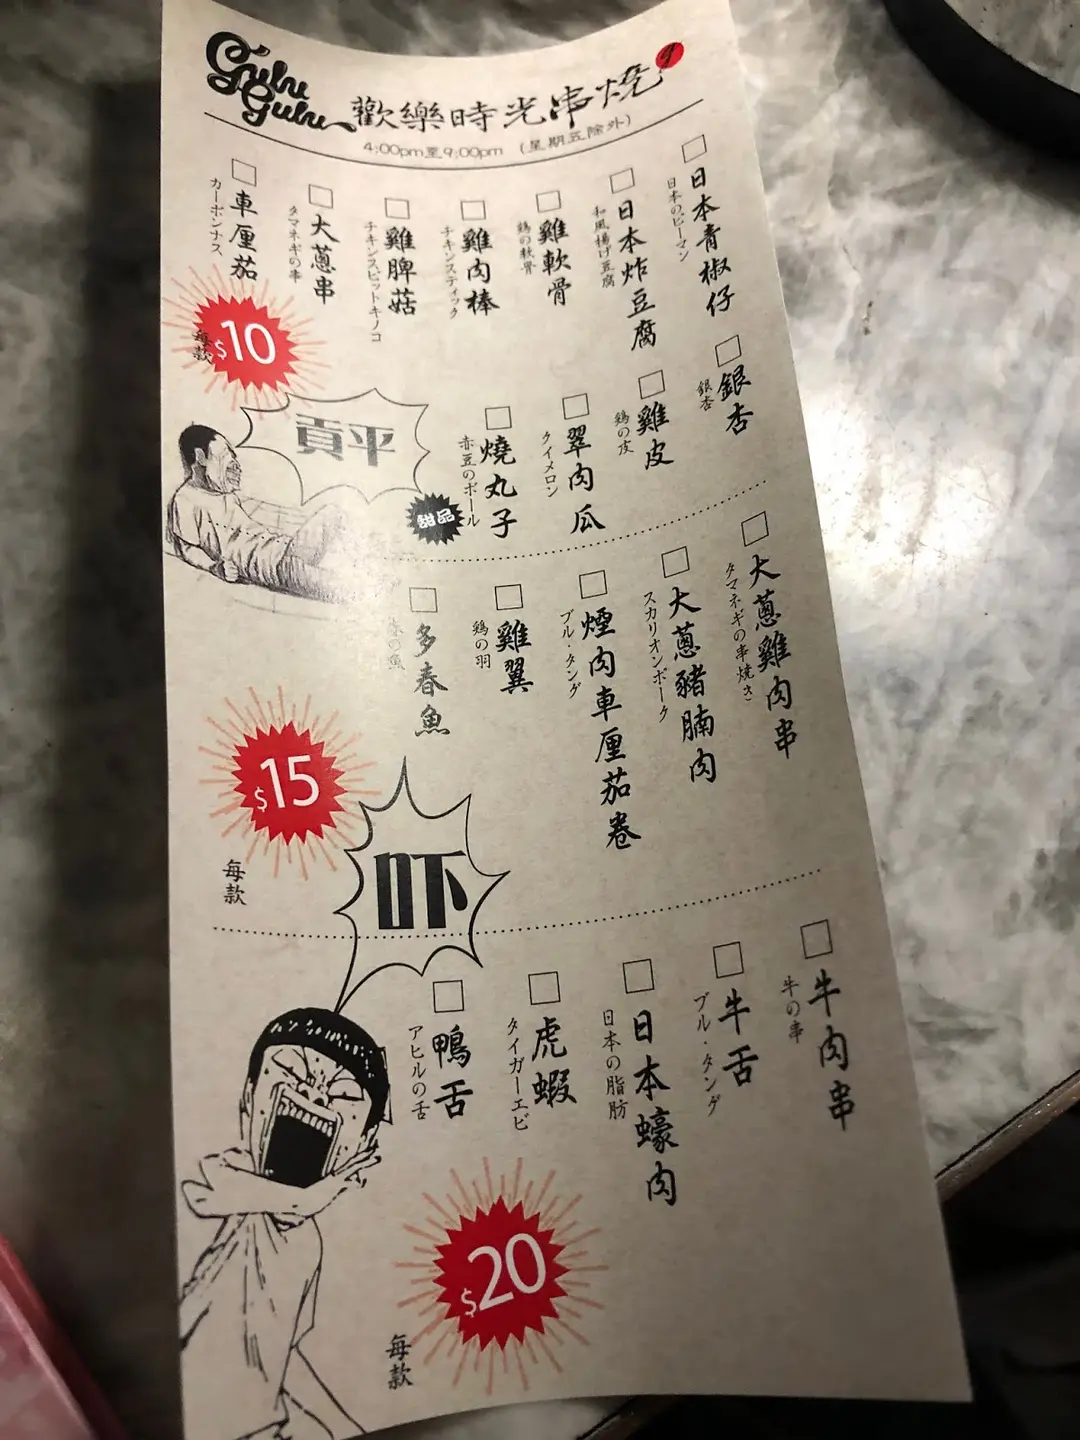 Gulu Gulu
歡樂時光串燒
4:00pm至9:00pm (星期五除外)
日本青椒仔
日本のピーマン
日本炸豆腐
和風揚げ豆腐
雞軟骨
鶏の軟骨
雞肉棒
チキンスティック
雞脾菇
チキンスピットキノコ
大蔥串
タマネギの串
車厘茄
カーボンナス
每款
$10
銀杏
銀杏
雞皮
鶏の皮
翠肉瓜
クイメロン
燒丸子
赤豆のボール
甜品
貢平
大蔥雞肉串
タマネギの串焼き
大蔥豬腩肉
スカリオンポーク
煙肉車厘茄卷
ブル・タング
雞翼
鶏の羽
多春魚
の魚
$15
每款
吓
牛肉串
牛の串
牛舌
ブル・タング
日本蠔肉
日本の脂肪
虎蝦
タイガーエビ
鴨舌
アヒルの舌
$20
每款